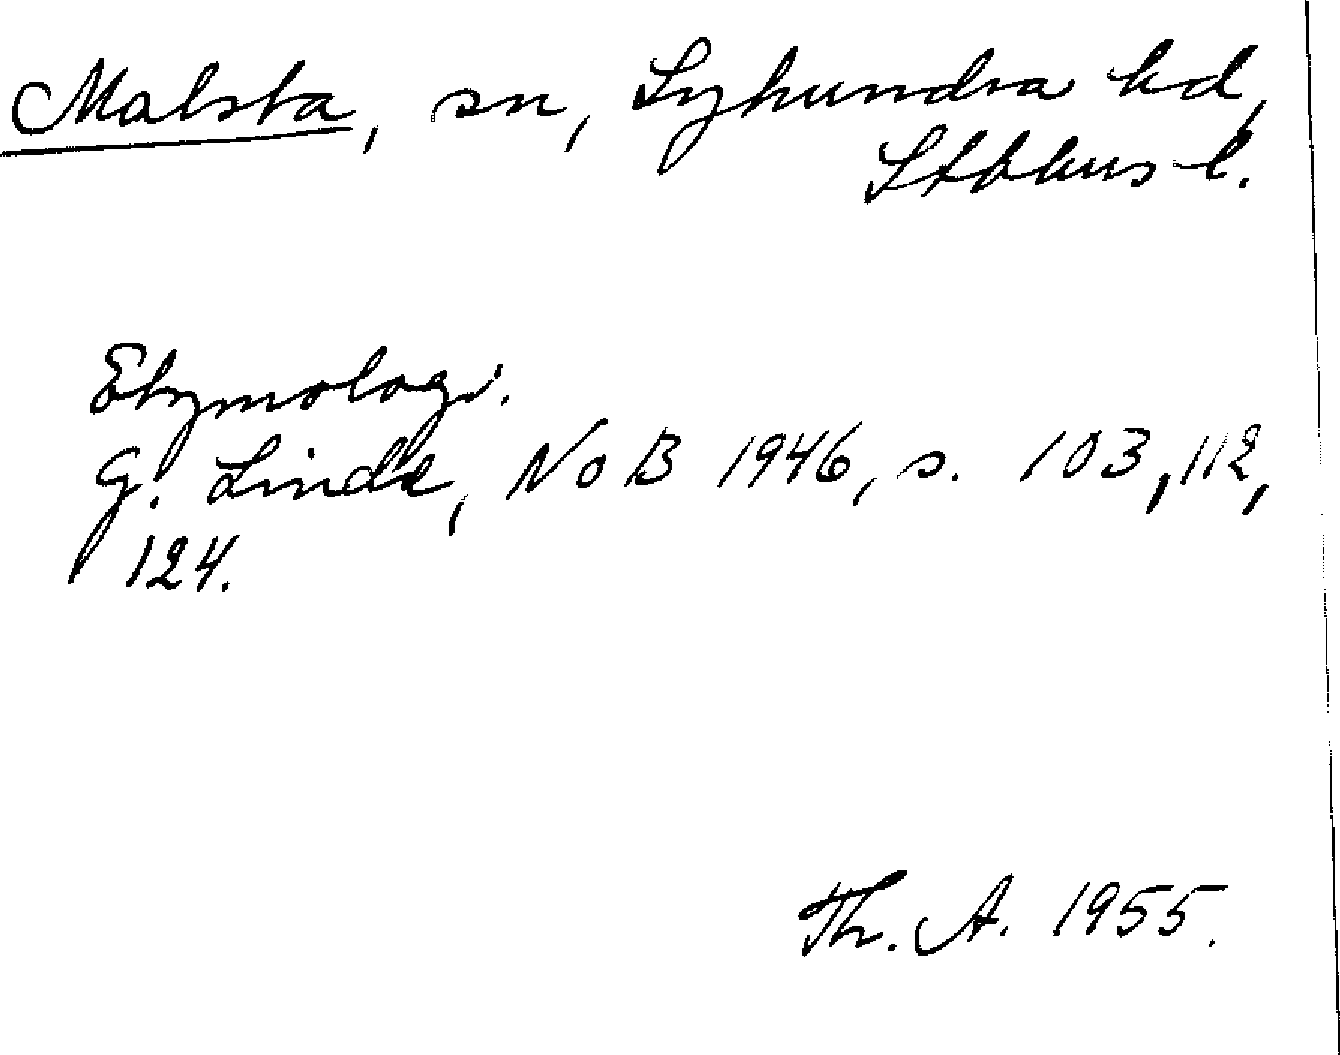 Malsta, sn, Lyhundra hd,
Stbhus l.
Etymologi.
G. Linde, NoB 1946, s. 103, 112,
124.
Th. A. 1955.